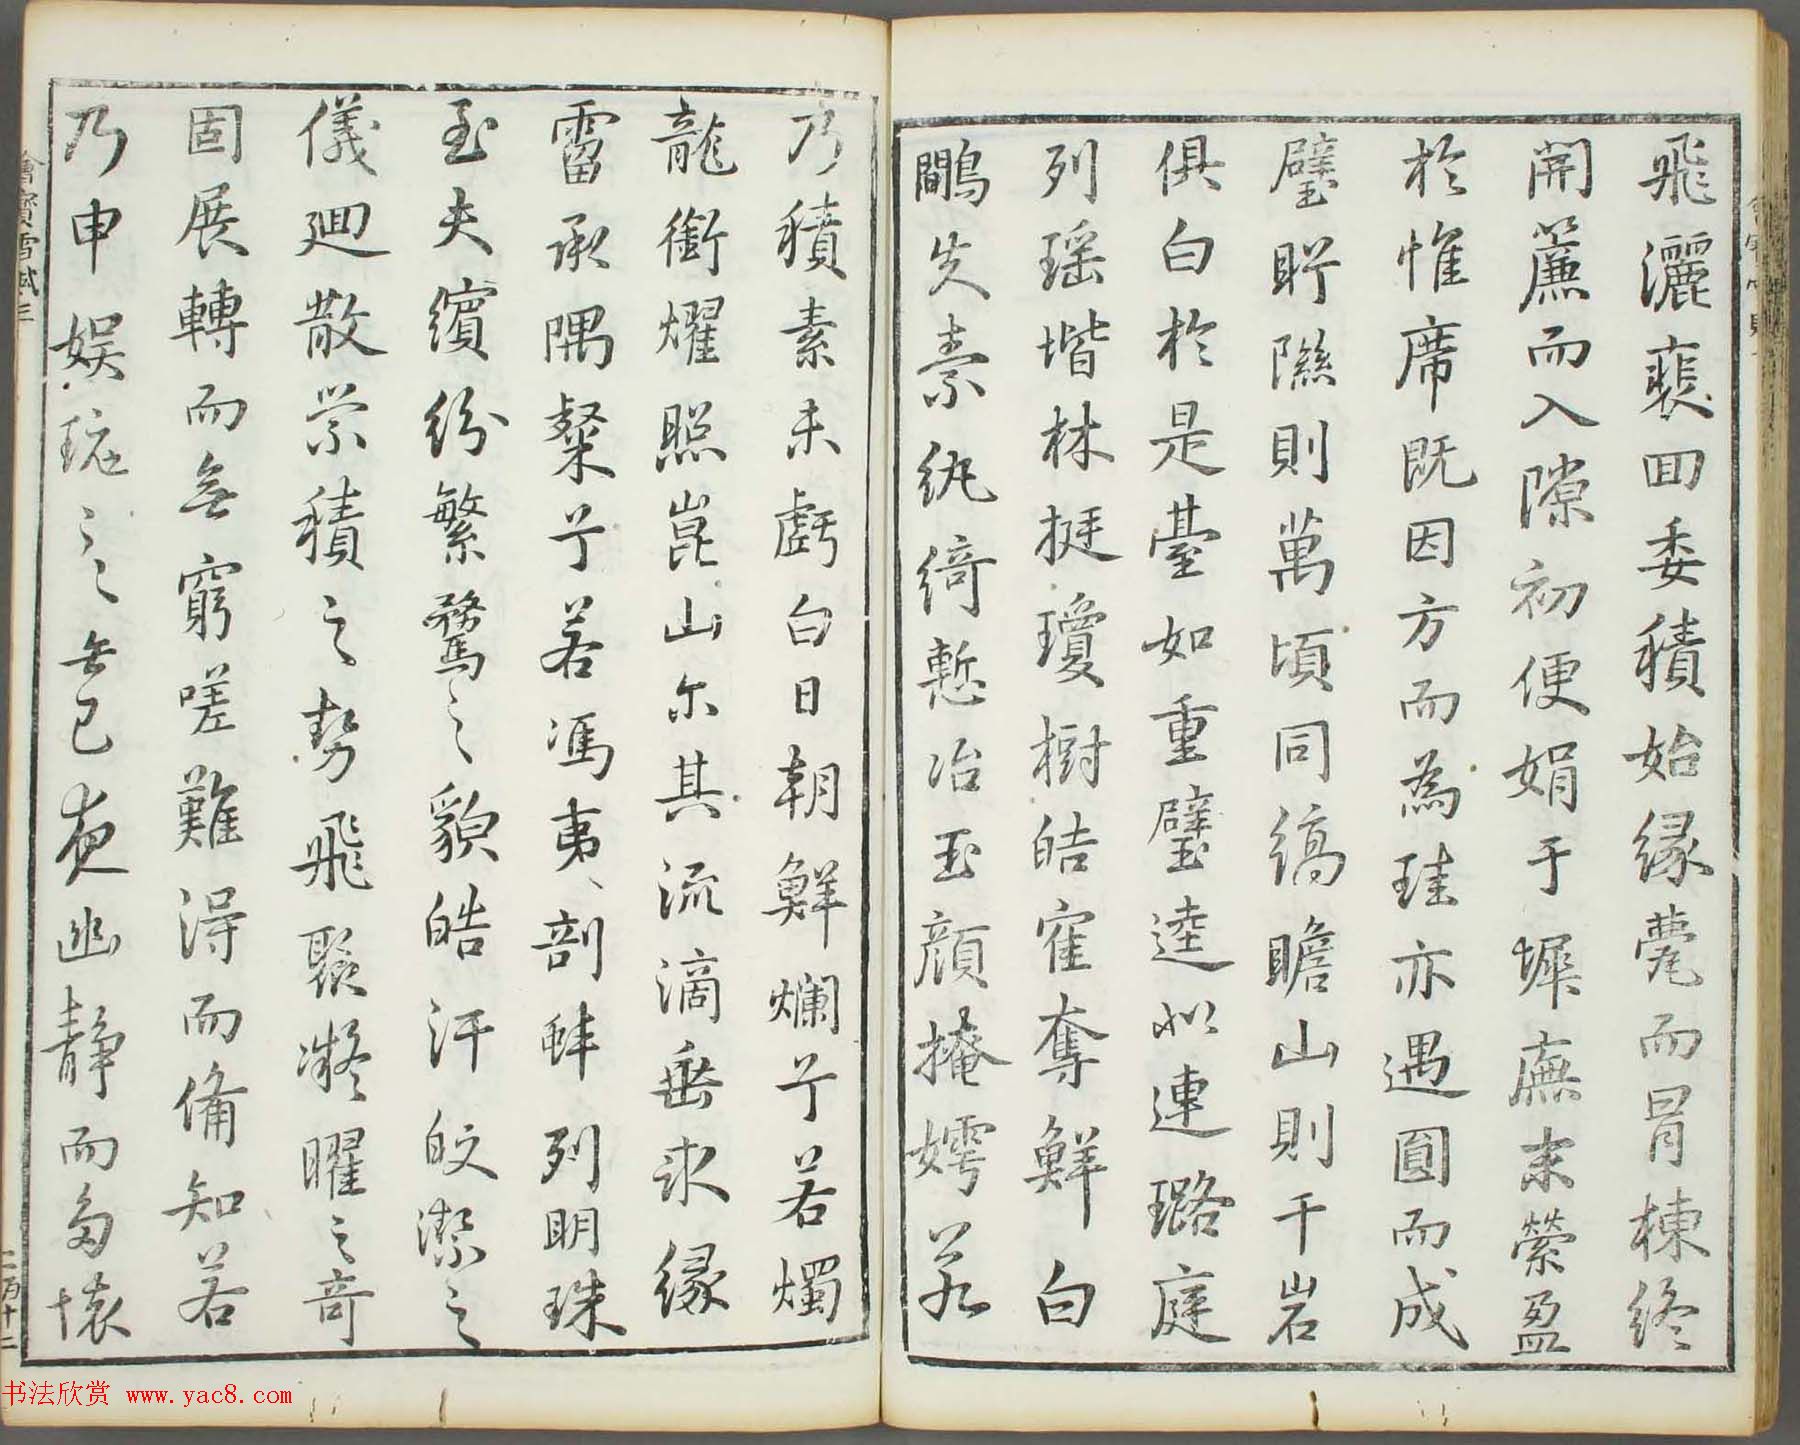 飛灑裵回委積始緣甍而冐棟終
開簾而入隙初便娟于墀廡末縈盈
於惟席既因方而為珪亦遇圓而成
璧眝隰則萬頃同縞瞻山則千岩
俱白於是臺如重璧逵似連璐庭
列瑶堦林挺瓊樹皓隺奪鮮白
鷳失素紈綺慙冶玉顔掩嫮若
乃積素未虧白日朝鮮爛兮若燭
龍銜燿照崑山尒其流滴垂氷緣
霤承隅粲兮若馮夷剖蚌列明珠
至夫繽紛繁騖之貌皓汗皎潔之
儀廻散萦積之勢飛聚凝曜之奇
固展轉而無窮嗟難得而備知若
乃申娱玩之無已夜幽静而多懷
雪賦三
二百十二
书法欣赏 www.yac8.com